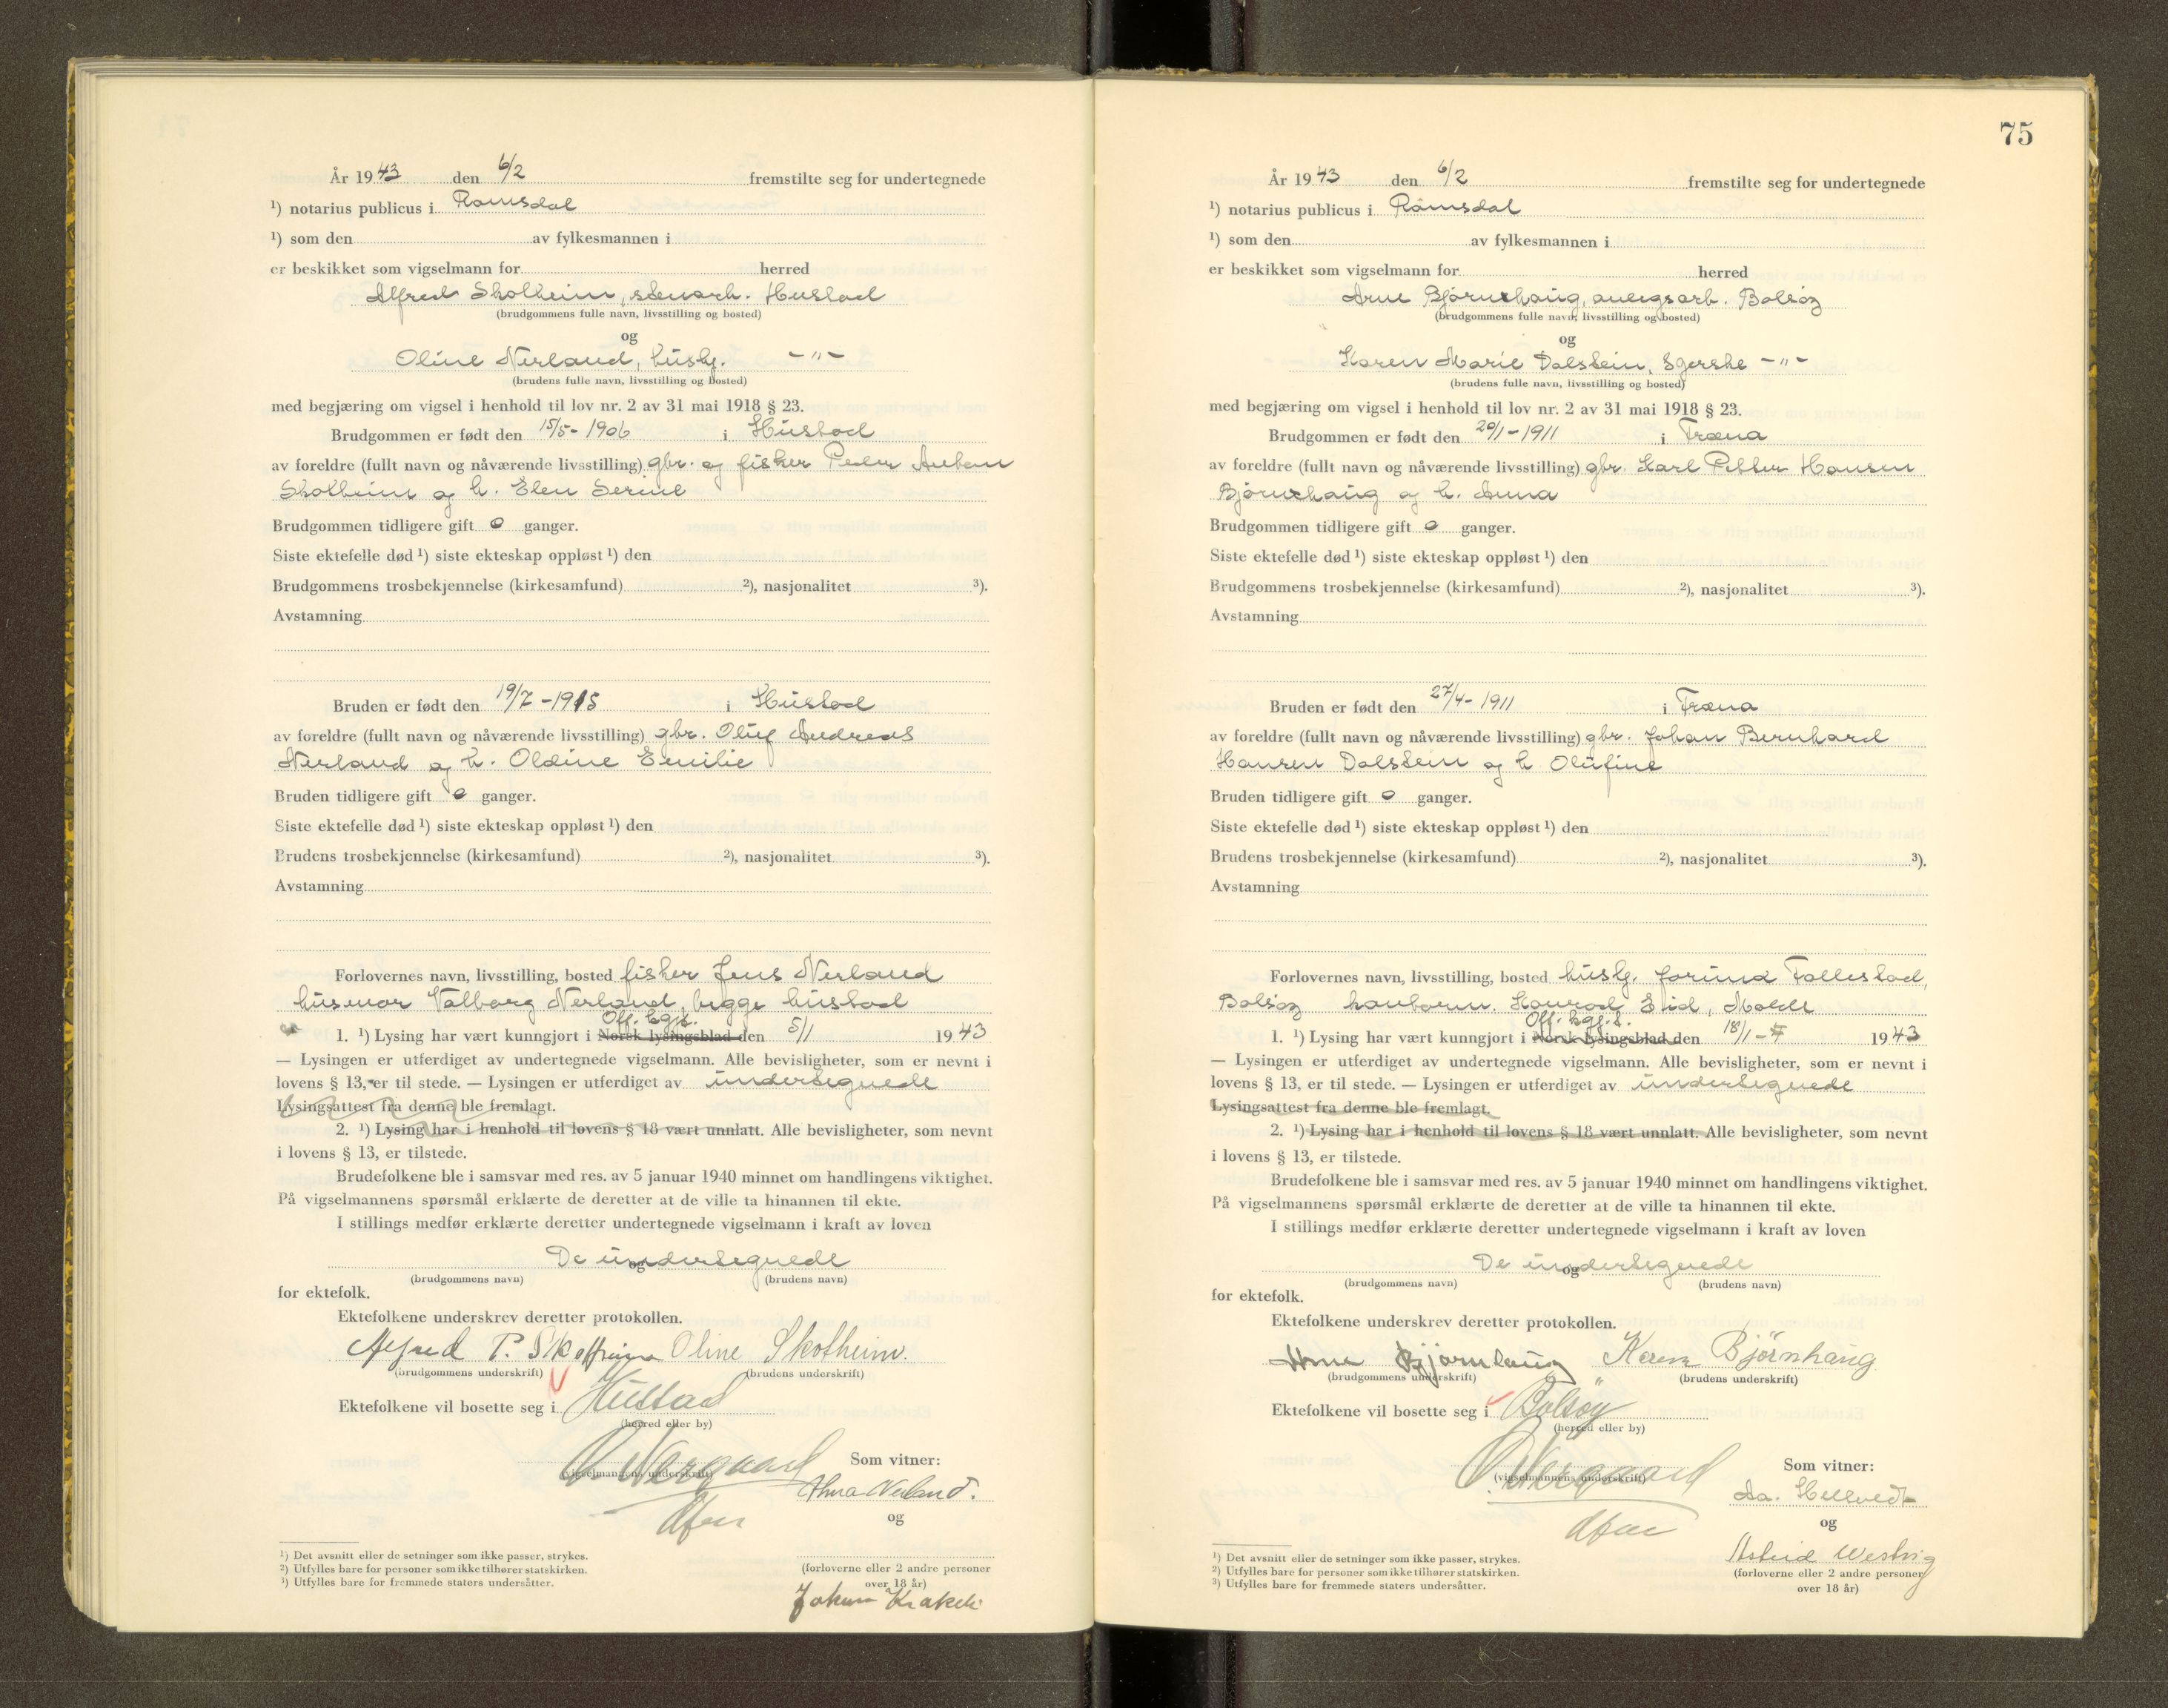 År 1943 den 6/2 fremstilte seg for undertegnede
¹) notarius publicus i Romsdal
¹) som den av fylkesmannen i
er beskikket som vigselmann for herred
Alfred Skotheim, stenarb. Hustad
(brudgommens fulle navn, livsstilling og bosted)
og
Oline Nerland, husbg. -"-
(brudens fulle navn, livsstilling og bosted)
med begjæring om vigsel i henhold til lov nr. 2 av 31 mai 1918 § 23.
Brudgommen er født den 15/5-1906 i Hustad
av foreldre (fullt navn og nåværende livsstilling) gbr. og fisker Peder
Skotheim og h. Elen Serine
Brudgommen tidligere gift 0 ganger.
Siste ektefelle død ¹) siste ekteskap oppløst ¹) den
Brudgommens trosbekjennelse (kirkesamfund) ²), nasjonalitet ³).
Avstamning
Bruden er født den 19/7-1915 i Hustad
av foreldre (fullt navn og nåværende livsstilling) gbr. Oluf Andreas
Nerland og h. Oldine Emilie
Bruden tidligere gift 0 ganger.
Siste ektefelle død ¹) siste ekteskap oppløst ¹) den
Brudens trosbekjennelse (kirkesamfund) ²), nasjonalitet ³).
Avstamning
Forlovernes navn, livsstilling, bosted fisker Jens Nerland
husmor Valborg Nerland, begge hustad
Off. kgj.
1. ¹) Lysing har vært kunngjort i Norsk lysingsblad den 5/1 1943
— Lysingen er utferdiget av undertegnede vigselmann. Alle bevisligheter, som er nevnt i
lovens § 13, er til stede. — Lysingen er utferdiget av undertegnede
Lysingsattest fra denne ble fremlagt.
2. ¹) Lysing har i henhold til lovens § 18 vært unnlatt. Alle bevisligheter, som nevnt
i lovens § 13, er tilstede.
Brudefolkene ble i samsvar med res. av 5 januar 1940 minnet om handlingens viktighet.
På vigselmannens spørsmål erklærte de deretter at de ville ta hinannen til ekte.
I stillings medfør erklærte deretter undertegnede vigselmann i kraft av loven
De undertegnede
og
(brudgommens navn) (brudens navn)
for ektefolk.
Ektefolkene underskrev deretter protokollen.
Alfred P. Skotheim Oline Skotheim.
(brudgommens underskrift) (brudens underskrift)
Ektefolkene vil bosette seg i Hustad
(herred eller by)
O. Nergaard Som vitner:
(vigselmannens underskrift)
Alma Nerland.
og
¹) Det avsnitt eller de setninger som ikke passer, strykes.
²) Utfylles bare for personer som ikke tilhører statskirken.
³) Utfylles bare for fremmede staters undersåtter.
(forloverne eller 2 andre personer
over 18 år)
Johan
75
År 1943 den 6/2 fremstilte seg for undertegnede
¹) notarius publicus i Romsdal
¹) som den av fylkesmannen i
er beskikket som vigselmann for herred
Arne Bjørnhaug, anlegsarb. Bolsøy
(brudgommens fulle navn, livsstilling og bosted)
og
Karen Marie Dalstein, Sgerske -"-
(brudens fulle navn, livsstilling og bosted)
med begjæring om vigsel i henhold til lov nr. 2 av 31 mai 1918 § 23.
Brudgommen er født den 20/1-1911 i Træna
av foreldre (fullt navn og nåværende livsstilling) gbr. Karl Petter Hansen
Bjørnhaug og h. Anna
Brudgommen tidligere gift 0 ganger.
Siste ektefelle død ¹) siste ekteskap oppløst ¹) den
Brudgommens trosbekjennelse (kirkesamfund) ²), nasjonalitet ³).
Avstamning
Bruden er født den 27/4-1911 i Træna
av foreldre (fullt navn og nåværende livsstilling) gbr. Johan Bernhard
Hansen Dalstein og h Olufine
Bruden tidligere gift 0 ganger.
Siste ektefelle død ¹) siste ekteskap oppløst ¹) den
Brudens trosbekjennelse (kirkesamfund) ²), nasjonalitet ³).
Avstamning
Forlovernes navn, livsstilling, bosted husbg. Jorund Tallestad,
Bolsøy Konrad Eid, Molde
Off. kgj.
1. ¹) Lysing har vært kunngjort i Norsk lysingsblad den 18/1- 1943
— Lysingen er utferdiget av undertegnede vigselmann. Alle bevisligheter, som er nevnt i
lovens § 13, er til stede. — Lysingen er utferdiget av undertegnede
Lysingsattest fra denne ble fremlagt.
2. ¹) Lysing har i henhold til lovens § 18 vært unnlatt. Alle bevisligheter, som nevnt
i lovens § 13, er tilstede.
Brudefolkene ble i samsvar med res. av 5 januar 1940 minnet om handlingens viktighet.
På vigselmannens spørsmål erklærte de deretter at de ville ta hinannen til ekte.
I stillings medfør erklærte deretter undertegnede vigselmann i kraft av loven
De undertegnede
og
(brudgommens navn) (brudens navn)
for ektefolk.
Ektefolkene underskrev deretter protokollen.
Arne Bjørnhaug Karen Bjørnhaug
(brudgommens underskrift) (brudens underskrift)
Ektefolkene vil bosette seg i Bolsøy
(herred eller by)
O. Nergaard Som vitner:
(vigselmannens underskrift)
Aa. Hellvedt
og
Astrid Westvig
¹) Det avsnitt eller de setninger som ikke passer, strykes.
²) Utfylles bare for personer som ikke tilhører statskirken.
³) Utfylles bare for fremmede staters undersåtter.
(forloverne eller 2 andre personer
over 18 år)